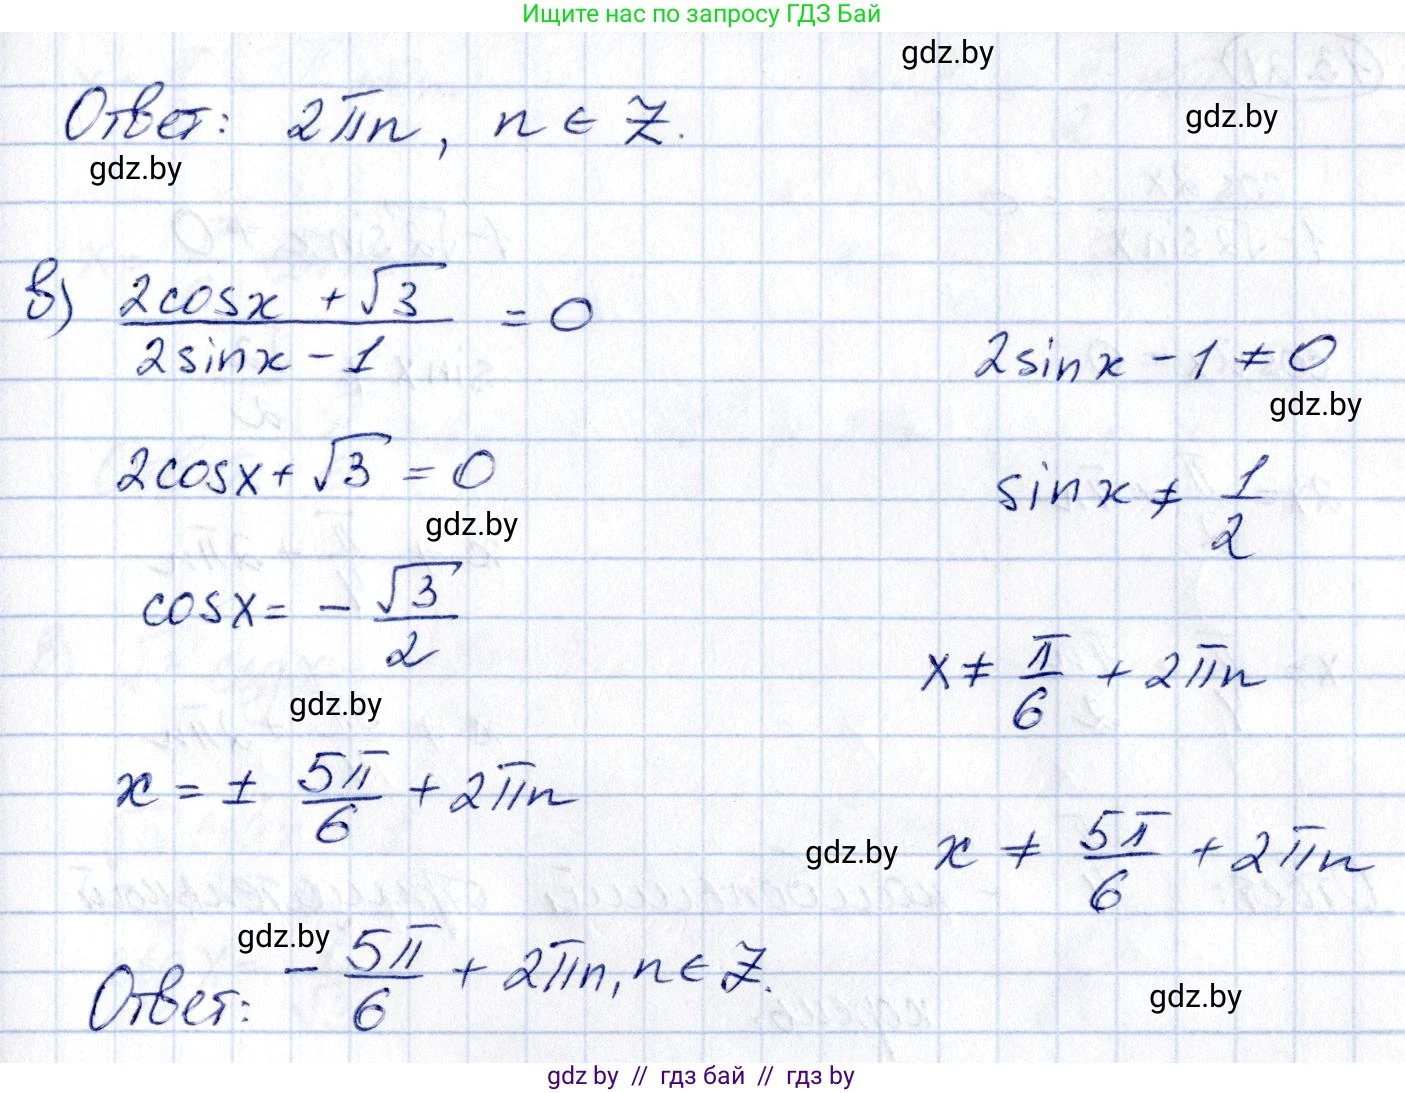 Ищите нас по запросу ГДЗ Бай
gdz.by
Ответ: 2πn, n ∈ Z.
gdz.by
gdz.by
в) (2cosx + √3)/(2sinx − 1) = 0
2sinx − 1 ≠ 0
gdz.by
2cosx + √3 = 0
sinx ≠ 1/2
gdz.by
cosx = − √3/2
x ≠ π/6 + 2πn
gdz.by
x = ± 5π/6 + 2πn
gdz.by
x ≠ 5π/6 + 2πn
gdz.by
Ответ: − 5π/6 + 2πn, n ∈ Z.
gdz.by
gdz by // гдз бай // гдз by